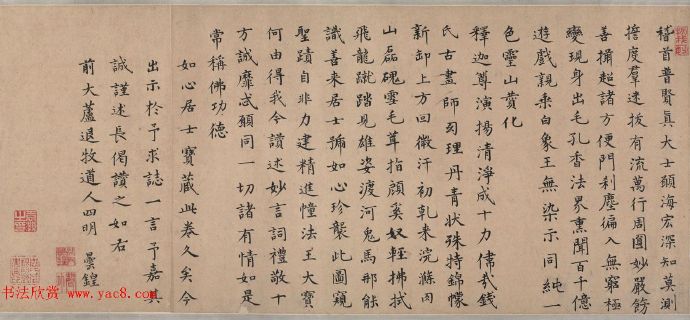 稽首普賢真大士願海宏深知莫測
擔度羣迷拔有流萬行周圓妙嚴飭
善攝超諸方便門刹塵徧入無窮極
變現身出毛孔香法界熏聞百千億
遊戲親乘白象王無染示同純一
色靈山贊化
釋迦尊演揚清淨成十力偉哉錢
氏古畫師匀理丹青狀殊特錦幪
新卸上方回微汗初乾来浣滌肉
山磊磈雲毛茸指顧奚奴輕拂拭
飛龍蹴踏見雄姿渡河鬼馬那能
識善来居士號如心珍襲此圖窺
聖蹟自非力建精進幢法王大寶
何由得我今讚述妙言詞禮敬十
方誠靡忒願同一切諸有情如是
常稱佛功德
如心居士寶藏此卷久矣今
出示於予求誌一言予嘉其
誠謹述長偈讚之如右
前大蘆退牧道人四明 曇鍠
书法欣赏
www.yac8.com